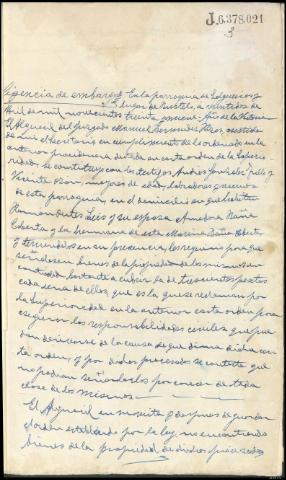 J.6.378.021
3
Diligencia de embargo En la parroquia de
lugar de a veintidos de
Abril de mil novecientos treinta y nueve. Año de la Victoria
El Alguacil del Juzgado Manuel Bermudez asistido
de mi el Secretario en cumplimiento de lo ordenado en la
anterior providencia dictada en carta orden de la Superio-
ridad, se constituyó con los testigos Andres y
Vicente mayores de edad, labradores y vecinos
de esta parroquia, en el domicilio en que habitan
Ramon Leis y su esposa Amadora
y la hermana de esta
y teniendolos en su presencia, les requirió para que
señalasen bienes de la propiedad de los mismos en
cantidad bastante a cubrir la de trescientas pesetas
cada una de ellos, que es la que se reclaman por
la Superioridad en la anterior carta orden para
asegurar las responsabilidades civiles que pue-
dan derivarse de la causa de que dimana dicha car-
ta orden, y por dichos procesados se contestó que
no podian señalarlos por carecer de toda
clase de los mismos
El Alguacil en su vista y despues de guardar
el orden establecido por la ley no encontrando
bienes de la propiedad de dichos procesados